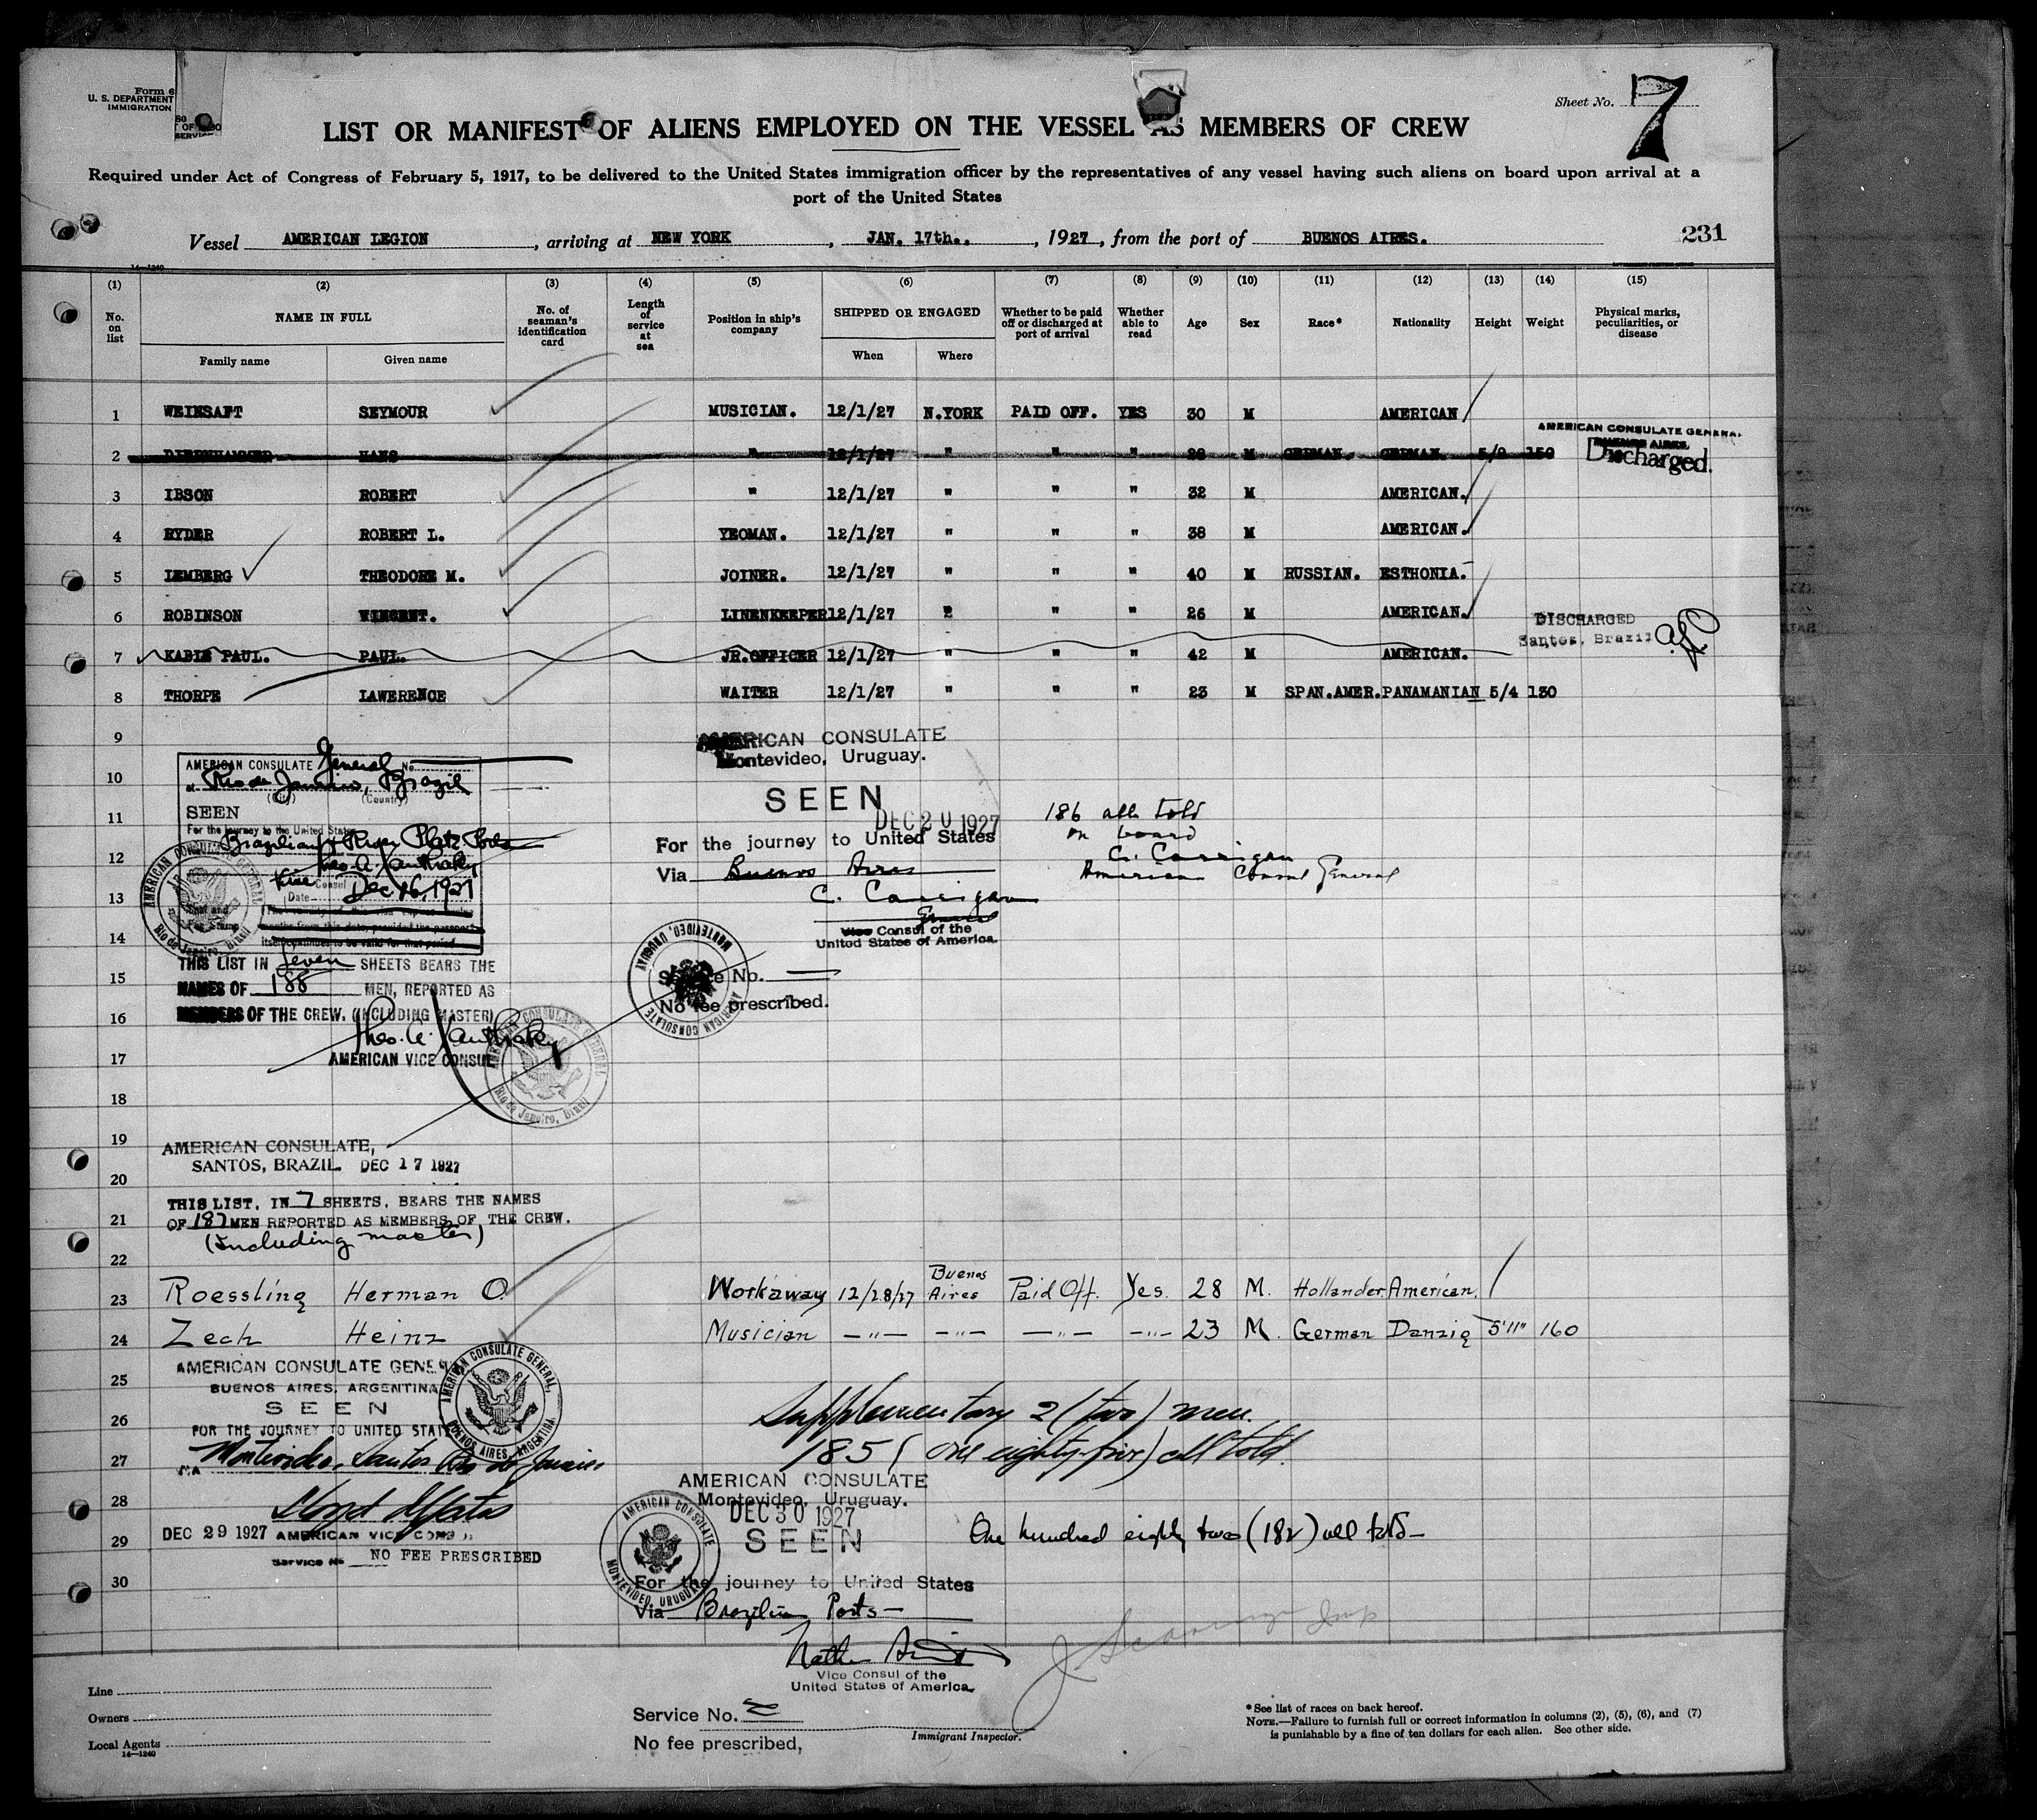 Form 6
U. S. DEPARTMENT
IMMIGRATION
Sheet No. 7
LIST OR MANIFEST OF ALIENS EMPLOYED ON THE VESSEL AS MEMBERS OF CREW
Required under Act of Congress of February 5, 1917, to be delivered to the United States immigration officer by the representatives of any vessel having such aliens on board upon arrival at a
port of the United States
Vessel AMERICAN LEGION, arriving at NEW YORK, JAN. 17th., 1927, from the port of BUENOS AIRES. 231
14—1240
(1) (2) (3) (4) (5) (6) (7) (8) (9) (10) (11) (12) (13) (14) (15)
No. on list NAME IN FULL No. of seaman's identification card Length of service at sea Position in ship's company SHIPPED OR ENGAGED Whether to be paid off or discharged at port of arrival Whether able to read Age Sex Race* Nationality Height Weight Physical marks, peculiarities, or disease
Family name Given name When Where
1 WEINSAFT SEYMOUR MUSICIAN. 12/1/27 N.YORK PAID OFF. YES 30 M AMERICAN
AMERICAN CONSULATE GENERAL
BUENOS AIRES.
2 HANS " 12/1/27 " " " 28 M GERMAN. GERMAN. 150 Discharged.
3 IBSON ROBERT " 12/1/27 " " " 32 M AMERICAN.
4 RYDER ROBERT L. YEOMAN. 12/1/27 " " " 38 M AMERICAN.
5 LEMBERG THEODORE M. JOINER. 12/1/27 " " " 40 M RUSSIAN. ESTHONIA.
6 ROBINSON VINCENT. LINENKEEPER 12/1/27 " " " 26 M AMERICAN.
DISCHARGED
Santos, Brazil
7 KABLE PAUL. PAUL. JR.OFFICER 12/1/27 " " " 42 M AMERICAN.
8 THORPE LAWERENCE WAITER 12/1/27 " " " 23 M SPAN.AMER. PANAMANIAN 5/4 130
9
10
11
12
13
14
15
16
17
18
19
20
21
22
AMERICAN CONSULATE General No.
at Rio de Janeiro, Brazil
(City) (Country)
SEEN
For the journey to the United States
Brazilian & River Plate Ports
Vice Consul
Date Dec 16, 1927
AMERICAN CONSULATE GENERAL
Rio de Janeiro, Brazil
THIS LIST IN Seven SHEETS BEARS THE
NAMES OF 188 MEN, REPORTED AS
MEMBERS OF THE CREW. (INCLUDING MASTER)
AMERICAN VICE CONSUL
AMERICAN CONSULATE GENERAL
Rio de Janeiro, Brazil
AMERICAN CONSULATE
Montevideo, Uruguay.
SEEN
DEC 20 1927
For the journey to United States
Via Buenos Aires
C. Carrigan
General
Vice Consul of the
United States of America.
Service No.
No fee prescribed.
AMERICAN CONSULATE
MONTEVIDEO, URUGUAY
186 all told
on board
C. Carrigan
American Consul General
AMERICAN CONSULATE,
SANTOS, BRAZIL. DEC 17 1927
THIS LIST, IN 7 SHEETS, BEARS THE NAMES
OF 187 MEN REPORTED AS MEMBERS OF THE CREW.
(including master)
23 Roessling Herman O. Workaway 12/28/27 Buenos Aires Paid Off. Yes. 28 M. Hollander. American.
24 Zech Heinz Musician -"- -"- -"- -"- 23 M. German Danzig 5'11" 160
25
26
27
28
29
30
AMERICAN CONSULATE GENERAL
BUENOS AIRES, ARGENTINA
SEEN
FOR THE JOURNEY TO UNITED STATES
VIA Montevideo, Santos Rio de Janeiro
DEC 29 1927 AMERICAN VICE CONSUL
Service No NO FEE PRESCRIBED
AMERICAN CONSULATE GENERAL,
BUENOS AIRES, ARGENTINA.
Supplementary 2 (two) men.
185 (one eighty-five) all told.
AMERICAN CONSULATE
Montevideo, Uruguay.
DEC 30 1927
SEEN
For the journey to United States
Via Brazilian Ports
Vice Consul of the
United States of America.
AMERICAN CONSULATE
MONTEVIDEO, URUGUAY
One hundred eighty two (182) all told
Service No.
No fee prescribed,
Immigrant Inspector.
Line
Owners
Local Agents
14—1240
*See list of races on back hereof.
NOTE.—Failure to furnish full or correct information in columns (2), (5), (6), and (7)
is punishable by a fine of ten dollars for each alien. See other side.